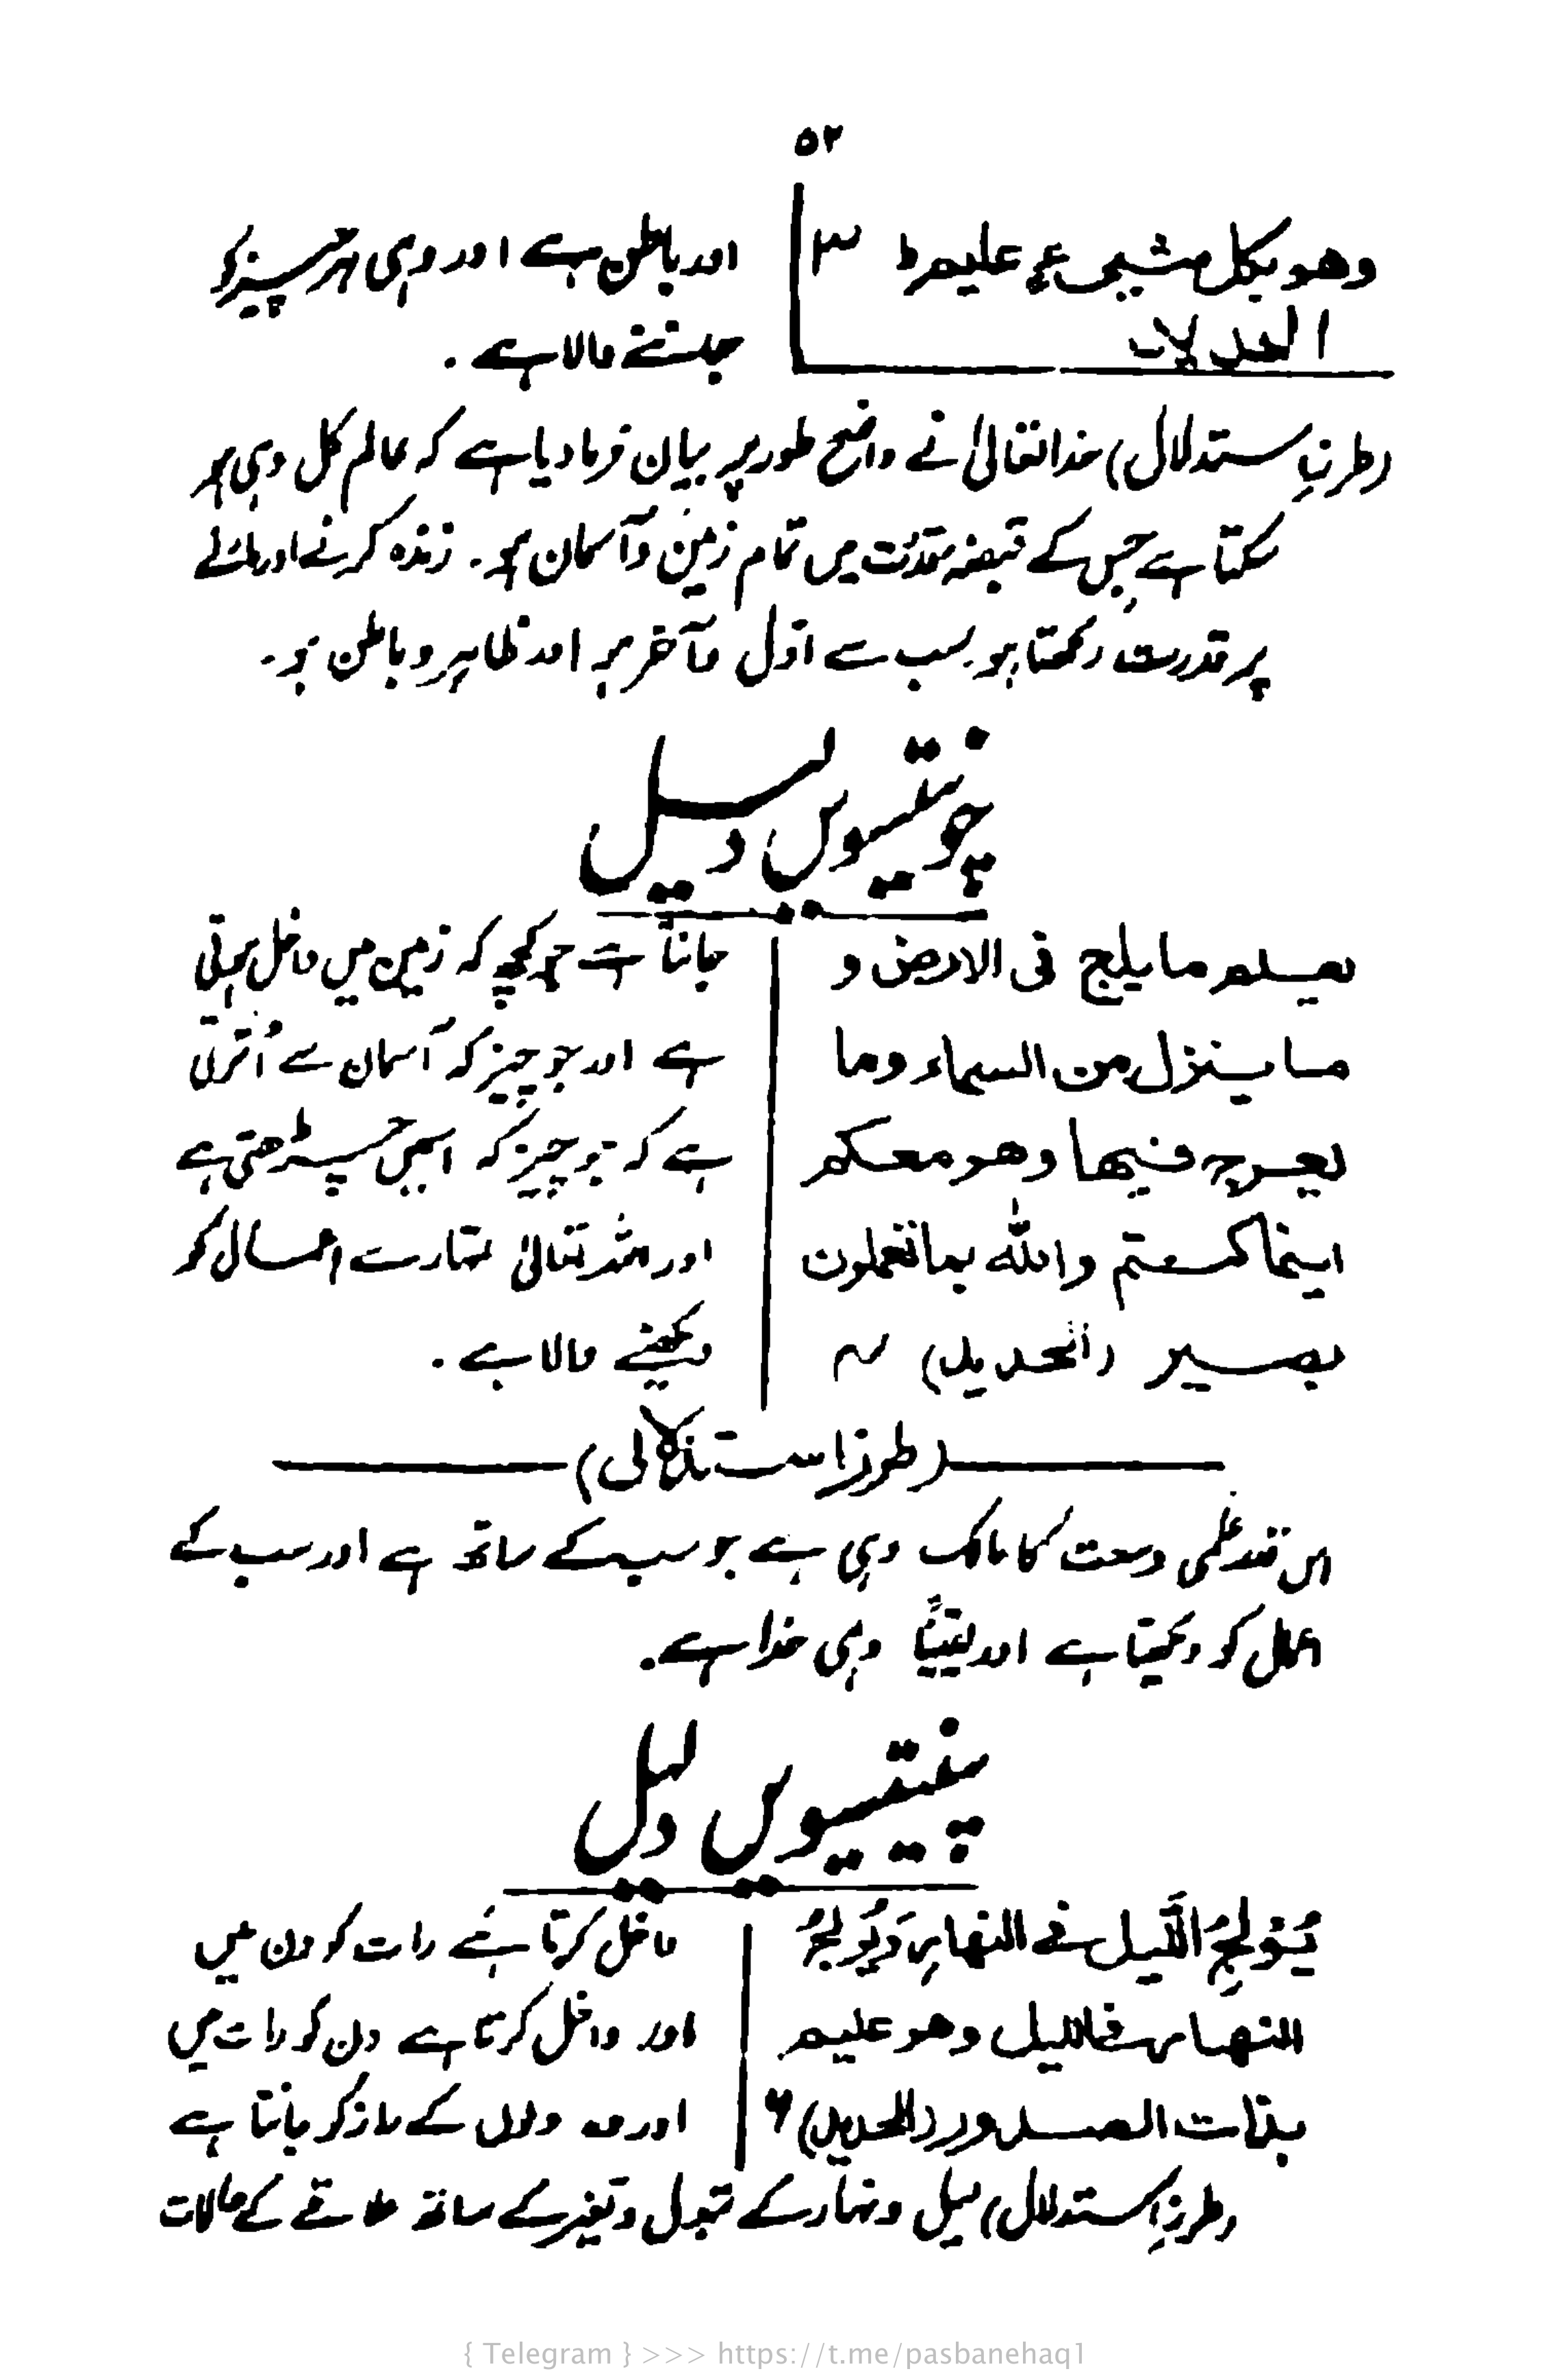 ۵۲
وھو بکل شیء علیم ط ۳
الحدید
اور باطن ہے اور وہی ہر چیز کو
جاننے والا ہے ۔
(طرزِ استدلال) خدا تعالیٰ نے واضح طور پر بیان فرما دیا ہے کہ عالم کل وہی ہو
سکتا ہے جس کے قبضہ قدرت میں تمام زمین و آسمان ہو ۔ زندہ کرنے اور مارنے
پر قدرت رکھتا ہو سب سے اوّل و آخر ہو اور ظاہر و باطن ہو ۔
چونتیسویں دلیل
یعلم ما یلج فی الارض و
ما ینزل من السماء وما
یعرج فیھا وھو معکم
اینما کنتم واللہ بما تعملون
بصیر (الحدید) ۴
جانتا ہے جو کچھ کہ زمین میں داخل ہوتی
ہے اور جو چیز کہ آسمان سے اُترتی
ہے کہ جو چیز کہ اسمیں چڑھتی ہے
اور اللہ تعالیٰ تمہارے اعمال کو
دیکھنے والا ہے ۔
(طرز استدلال)
اس قدر علمی وسعت کا مالک وہی ہے جو سب کے ساتھ ہے اور سب کے
اعمال کو دیکھتا ہے اور یقیناً وہی خدا ہے ۔
پنتیسویں دلیل
یُوْلِجُ الَّیل فے النھارِ وَیُوْلِجُ
النھار فے اللیل وھو علیم
بذات الصدور (الحدید) ۶
داخل کرتا ہے رات کو دن میں
اور داخل کرتا ہے دن کو رات میں
اور وہ دلوں کے راز کو جانتا ہے
(طرزِ استدلال) لیل و نہار کے تبدل و تغیر کے ساتھ علاقے کے حالات
{ Telegram } >>> https://t.me/pasbanehaq1